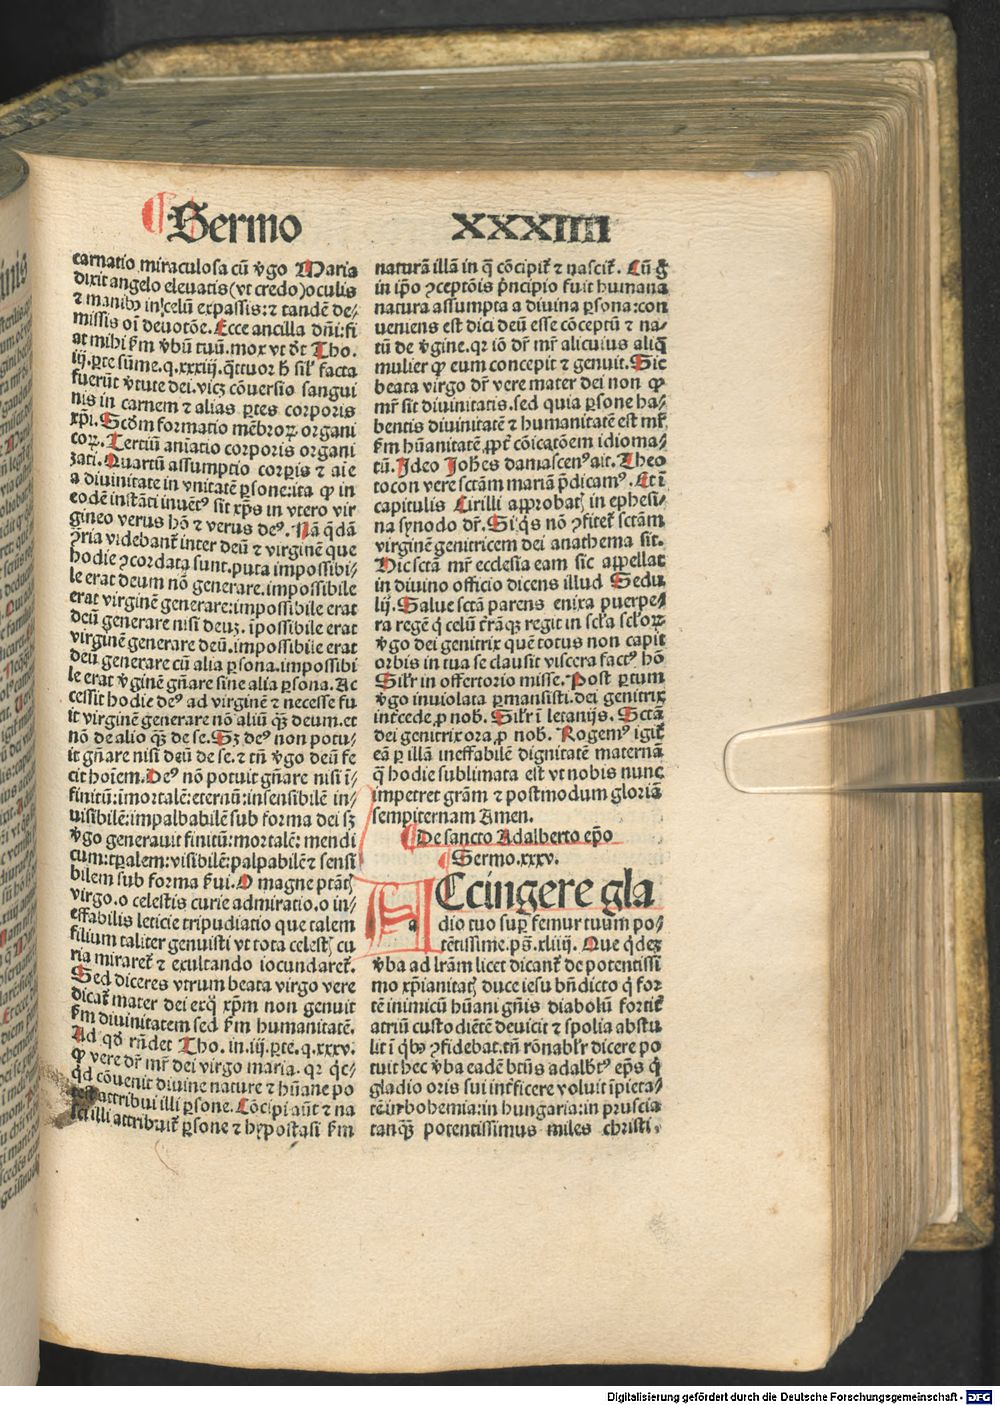 Sermo XXXIIII
carnatio miraculosa cū v̄go Maria
dixit angelo eleuatis (vt credo) oculis
⁊ manibꝰ in celū expassis: ⁊ tandē de⸗
missis oī deuotōe. Ecce ancilla dn̄i: fi
at mihi ẜm v̄bū tuū. mox vt dt̄ Tho.
iij. ꝑte sūme. q. xxxiij. q̄ttuor h̄ sil̄ facta
fuerūt v̄tute dei. vicꝫ cōuersio sangui
nis in carnem ⁊ alias ꝑtes corporis
xp̄i. Scd̄m formatio mēbroꝝ organi
coꝝ. Tertiū aniatio corporis organi
zati. Quartū assumptio corꝑis ⁊ aīe
a diuinitate in vnitatē ꝑsone: ita ꝙ in
eodē instāti inuētꝰ sit xp̄s in vtero vir
gineo verus hō ⁊ verus deꝰ. Nā q̄dā
ꝯ̄ria videbant᷑ inter deū ⁊ virginē que
hodie ꝯcordata sunt. puta impossibi⸗
le erat deum nō generare. impossibile
erat virginē generare: impossibile erat
deū generare nisi deuꝫ. īpossibile erat
virginē generare deū. impossibile erat
deū generare cū alia ꝑsona. impossibi
le erat v̄ginē gn̄are sine alia ꝑsona. Ac
cessit hodie deꝰ ad virginē ⁊ necesse fu
it virginē generare nō aliū qꝫ̄ deum. et
nō de alio qꝫ̄ de se. Sꝫ deꝰ non potu⸗
it gn̄are nisi deū de se. ⁊ tn̄ v̄go deū fe
cit hoīem. Deꝰ nō potuit gn̄are nisi ī⸗
finitū: īmortalē: eternū: insensibilē in⸗
uisibilē: impalbabilē sub forma dei sꝫ
v̄go generauit finitū: mortalē: mendi
cum: tꝑalem: visibilē: palpabilē ⁊ sensi
bilem sub forma ẜui. O magne ptātꝭ
virgo. o celestis curie admiratio. o in⸗
effabilis leticie tripudiatio que talem
filium taliter genuisti vt tota celestꝭ cu
ria miraret᷑ ⁊ exultando iocundaret᷑.
Sed diceres vtrum beata virgo vere
dicat᷑ mater dei ex quo xp̄m non genuit
ẜm diuinitatem sed ẜm humanitatē.
Ad qd̄ rn̄det Tho. in. iij. ꝑte. q. xxxv.
ꝙ vere dr̄ mr̄ dei virgo maria. qr qc̄⸗
qd̄ cōuenit diuine nature ⁊ hūane po
test attribui illi ꝑsone. Cōcipi aūt ⁊ na
sci illi attribuit᷑ ꝑsone ⁊ hypostasi ẜm
naturā illā in q̄ cōcipit᷑ ⁊ nascit᷑. Cū g̊
in ip̄o ꝯceptōis p̄ncipio fuit humana
natura assumpta a diuina ꝑsona: con
ueniens est dici deū esse cōceptū ⁊ na⸗
tū de v̄gine. qr iō dr̄ mr̄ alicuius aliq̄
mulier ꝙ eum concepit ⁊ genuit. Sic
beata virgo dr̄ vere mater dei non ꝙ
mr̄ sit diuinitatis. sed quia ꝑsone ha⸗
bentis diuinitatē ⁊ humanitatē est mr̄
ẜm hūanitatē ꝓpt̄ cōicatōem idioma⸗
tū. Ideo Joh̄es damascenꝰ ait. Theo
tocon vere sctām mariā p̄dicamꝰ. Et ī
capitulis Cirilli approbatꝭ in ephesi⸗
na synodo dr̄. Si qs̄ nō ꝯfitet᷑ sctām
virginē genitricem dei anathema sit.
Hic sctā mr̄ ecclesia eam sic appellat
in diuino officio dicens illud Sedu
lij. Salue sctā parens enixa puerpe⸗
ra regē q̇ celū t̄rāqꝫ regit in scl̄a scl̄oꝝ
v̄go dei genitrix quē totus non capit
orbis in tua se clausit viscera factꝰ hō
Sil̄r in offertorio misse. Post ꝑtum
v̄go inuiolata ꝑmansisti. dei genitrix
int̄cede ꝓ nob̄. Sil̄r ī letanijs. Sctā
dei genitrix ora ꝓ nob̄. Rogemꝰ igit᷑
eā ꝑ illā ineffabilē dignitatē maternā
q̄ hodie sublimata est vt nobis nunc
impetret grām ⁊ postmodum gloriā
sempiternam Amen.
¶ De sancto Adalberto ep̄o
¶ Sermo. xxxv.
ACcingere gla
dio tuo suꝑ femur tuum po⸗
tētissime. ps̄. xliiij. Que q̇dez
v̄ba ad lr̄am licet dicant᷑ de potentissi
mo xp̄ianitatꝭ duce iesu bn̄dicto q̇ for
tē inimicū hūani gn̄is diabolū fortit᷑
atriū custodiētē deuicit ⁊ spolia abstu
lit ī qb̄ꝰ ꝯfidebat. tn̄ rōnabl̄r dicere po
tuit hec v̄ba eadē bt̄ūs adalbt̄ꝰ ep̄s q̇
gladio oris sui int̄ficere voluit īpieta⸗
tē in bohemia: in hungaria: in pruscia
tanqꝫ̄ potentissimus miles christi.
Digitalisierung gefördert durch die Deutsche Forschungsgemeinschaft - DFG